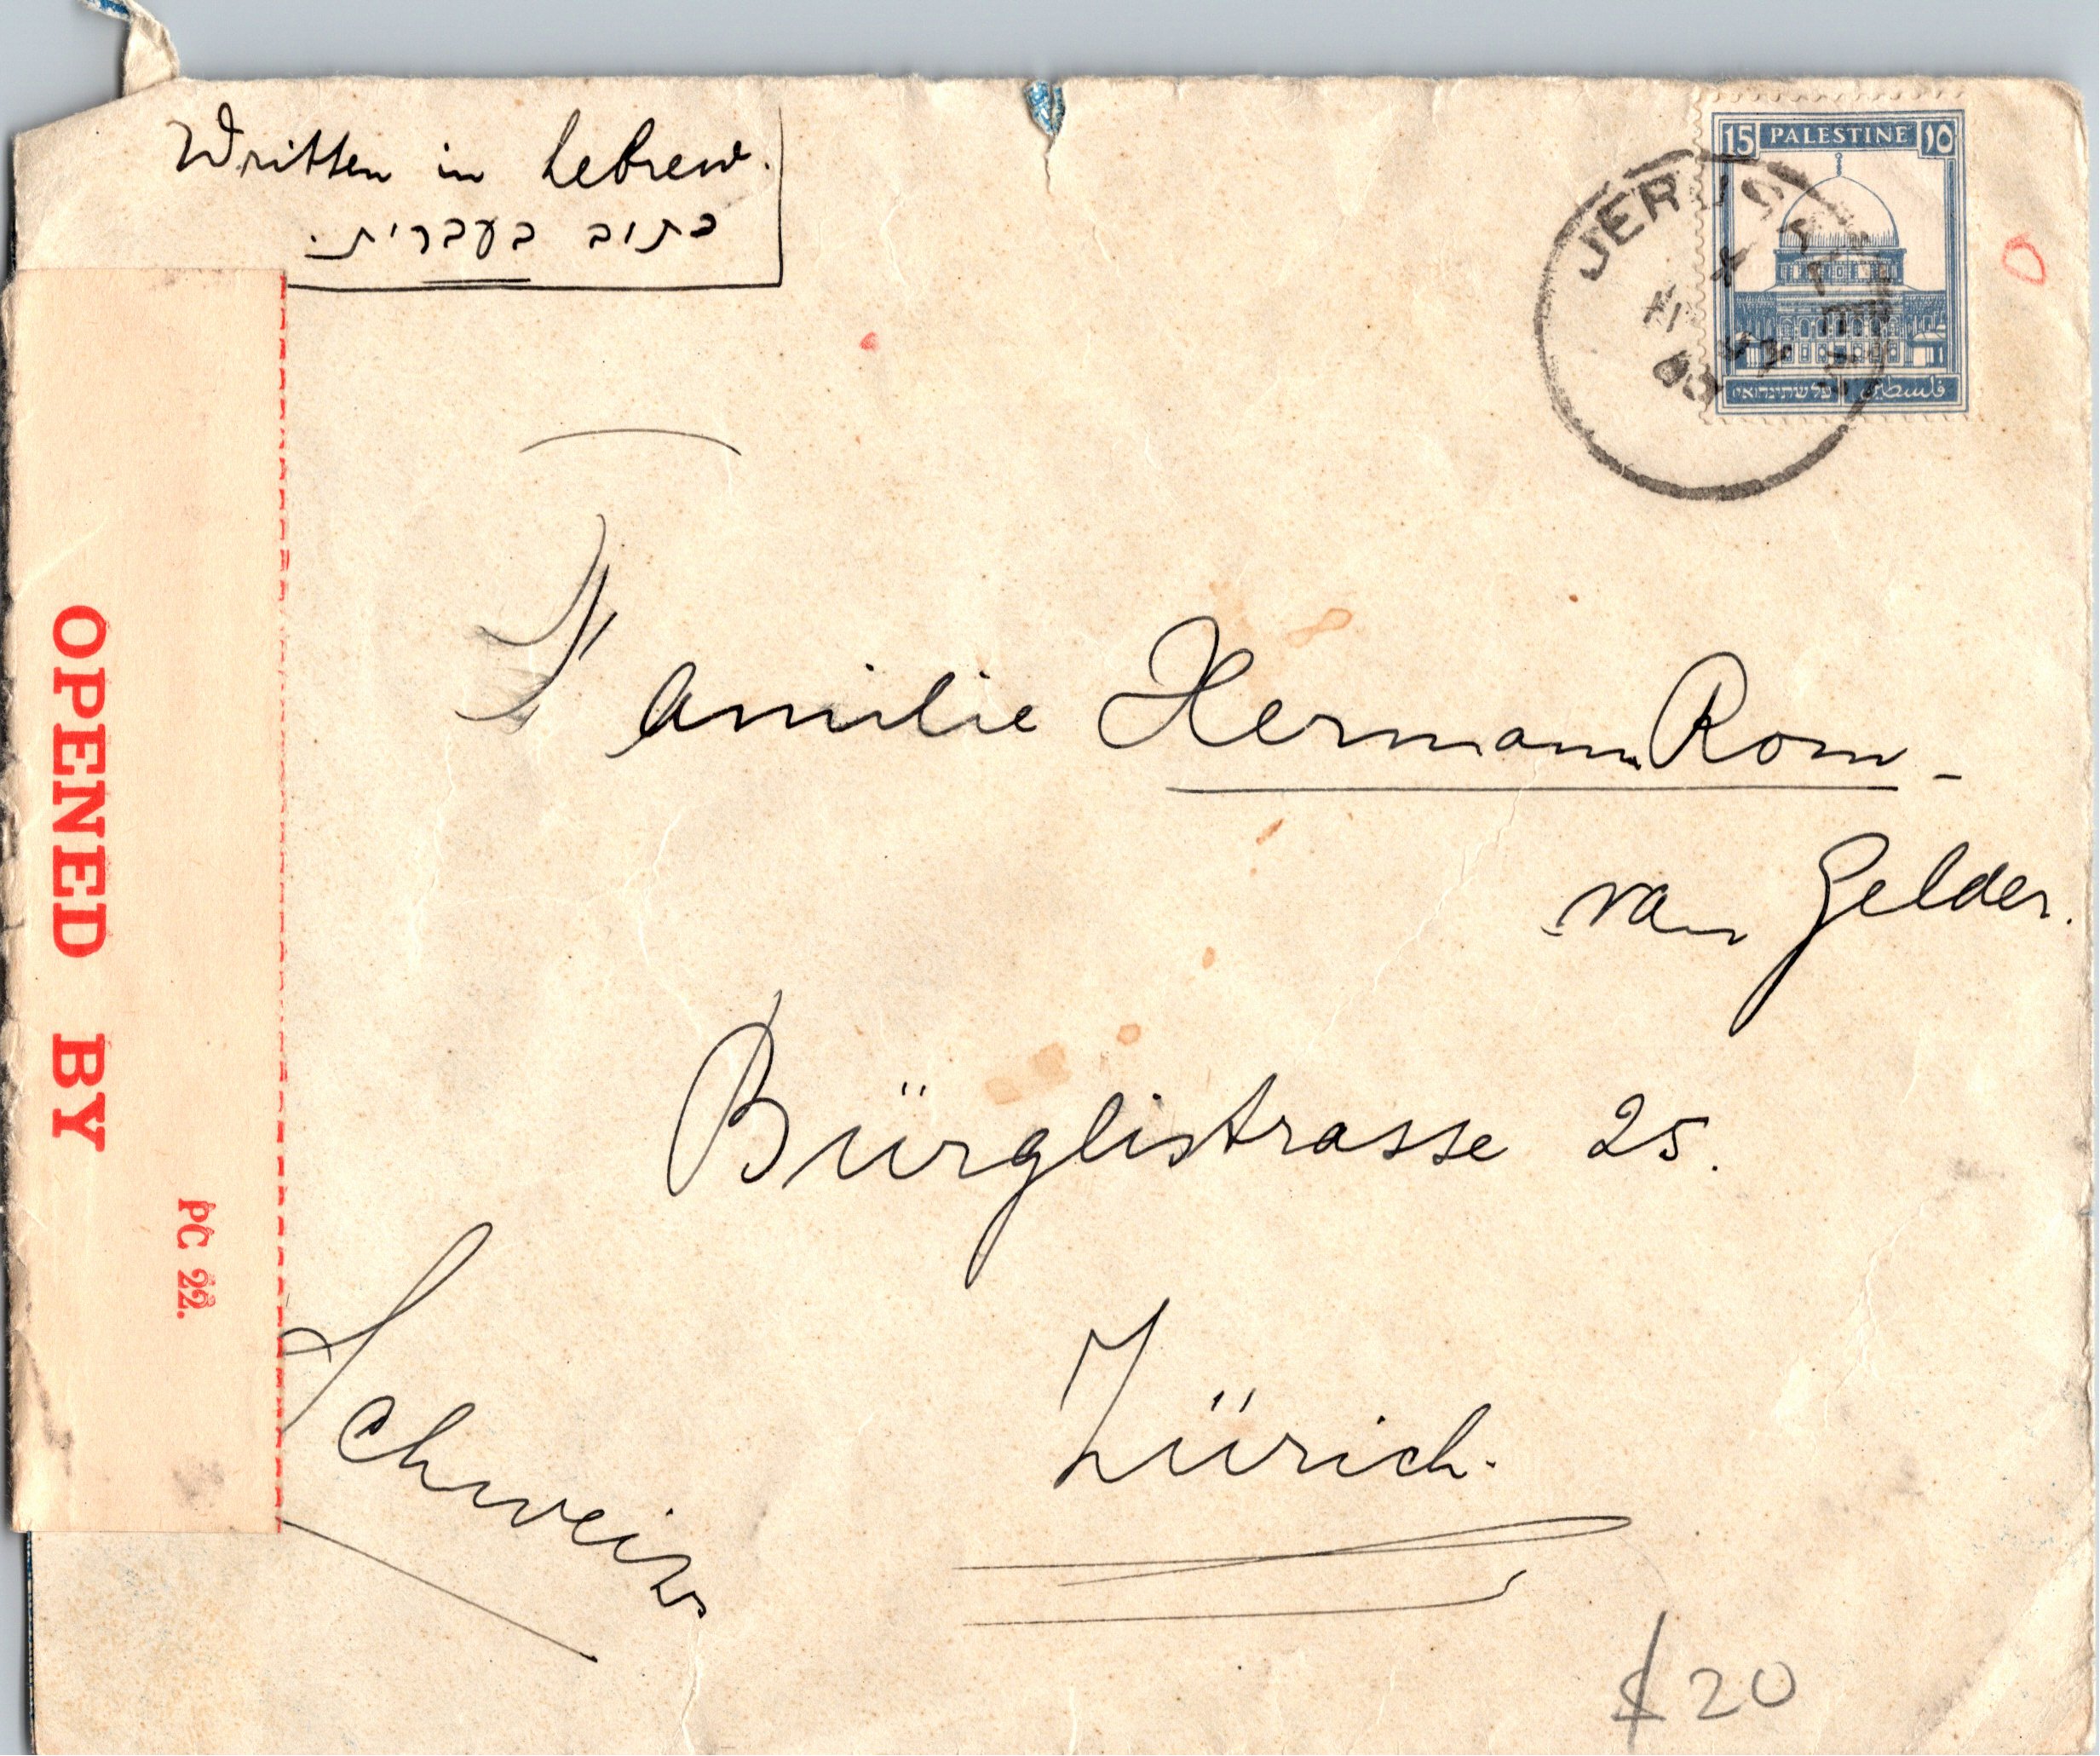 Written in hebrew.
כתוב בעברית.
15 PALESTINE ١٥
פלשתינה א״י فلسطين
JERUSALEM
OPENED BY
PC 22.
Familie Hermann Rom-
-van Gelder.
Bürglistrasse 25.
Zürich.
Schweiz
$20